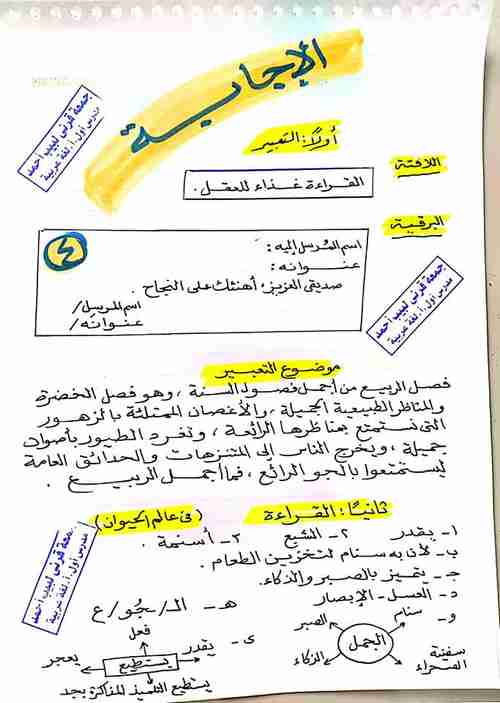 الإجابة
جمعة قرنى لبيب أحمد
مدرس أول أ. لغة عربية
أولاً: التعبير
اللافتة
القراءة غذاء للعقل.
البرقية
٤
اسم المرسل إليه:
عنوانه:
صديقى العزيز: أهنئك على النجاح.
اسم المرسل/
عنوانه/
جمعة قرنى لبيب أحمد
مدرس أول أ. لغة عربية
موضوع التعبير
فصل الربيع من أجمل فصول السنة، وهو فصل الخضرة
والمناظر الطبيعية الجميلة، والأغصان الممتلئة بالزهور
التى نستمتع بمناظرها الرائعة، وتغرد الطيور بأصوات
جميلة، ويخرج الناس إلى المتنزهات والحدائق العامة
ليستمتعوا بالجو الرائع، فما أجمل الربيع.
ثانيًا: القراءة (فى عالم الحيوان)
أ- ١- يقدر ٢- الشبع ٣- أسنمة.
ب- لأن به سنام لتخزين الطعام.
جـ- يتميز بالصبر والذكاء.
د- العسل - الإبصار
هـ- الـ/جُو/ع
جمعة قرنى لبيب أحمد
مدرس أول أ. لغة عربية
و- سنام
الصبر
الجمل
الذكاء
سفينة
الصحراء
ى- يقدر
فعل
يستطيع
يعجز
يستطيع التلميذ المذاكرة بجد